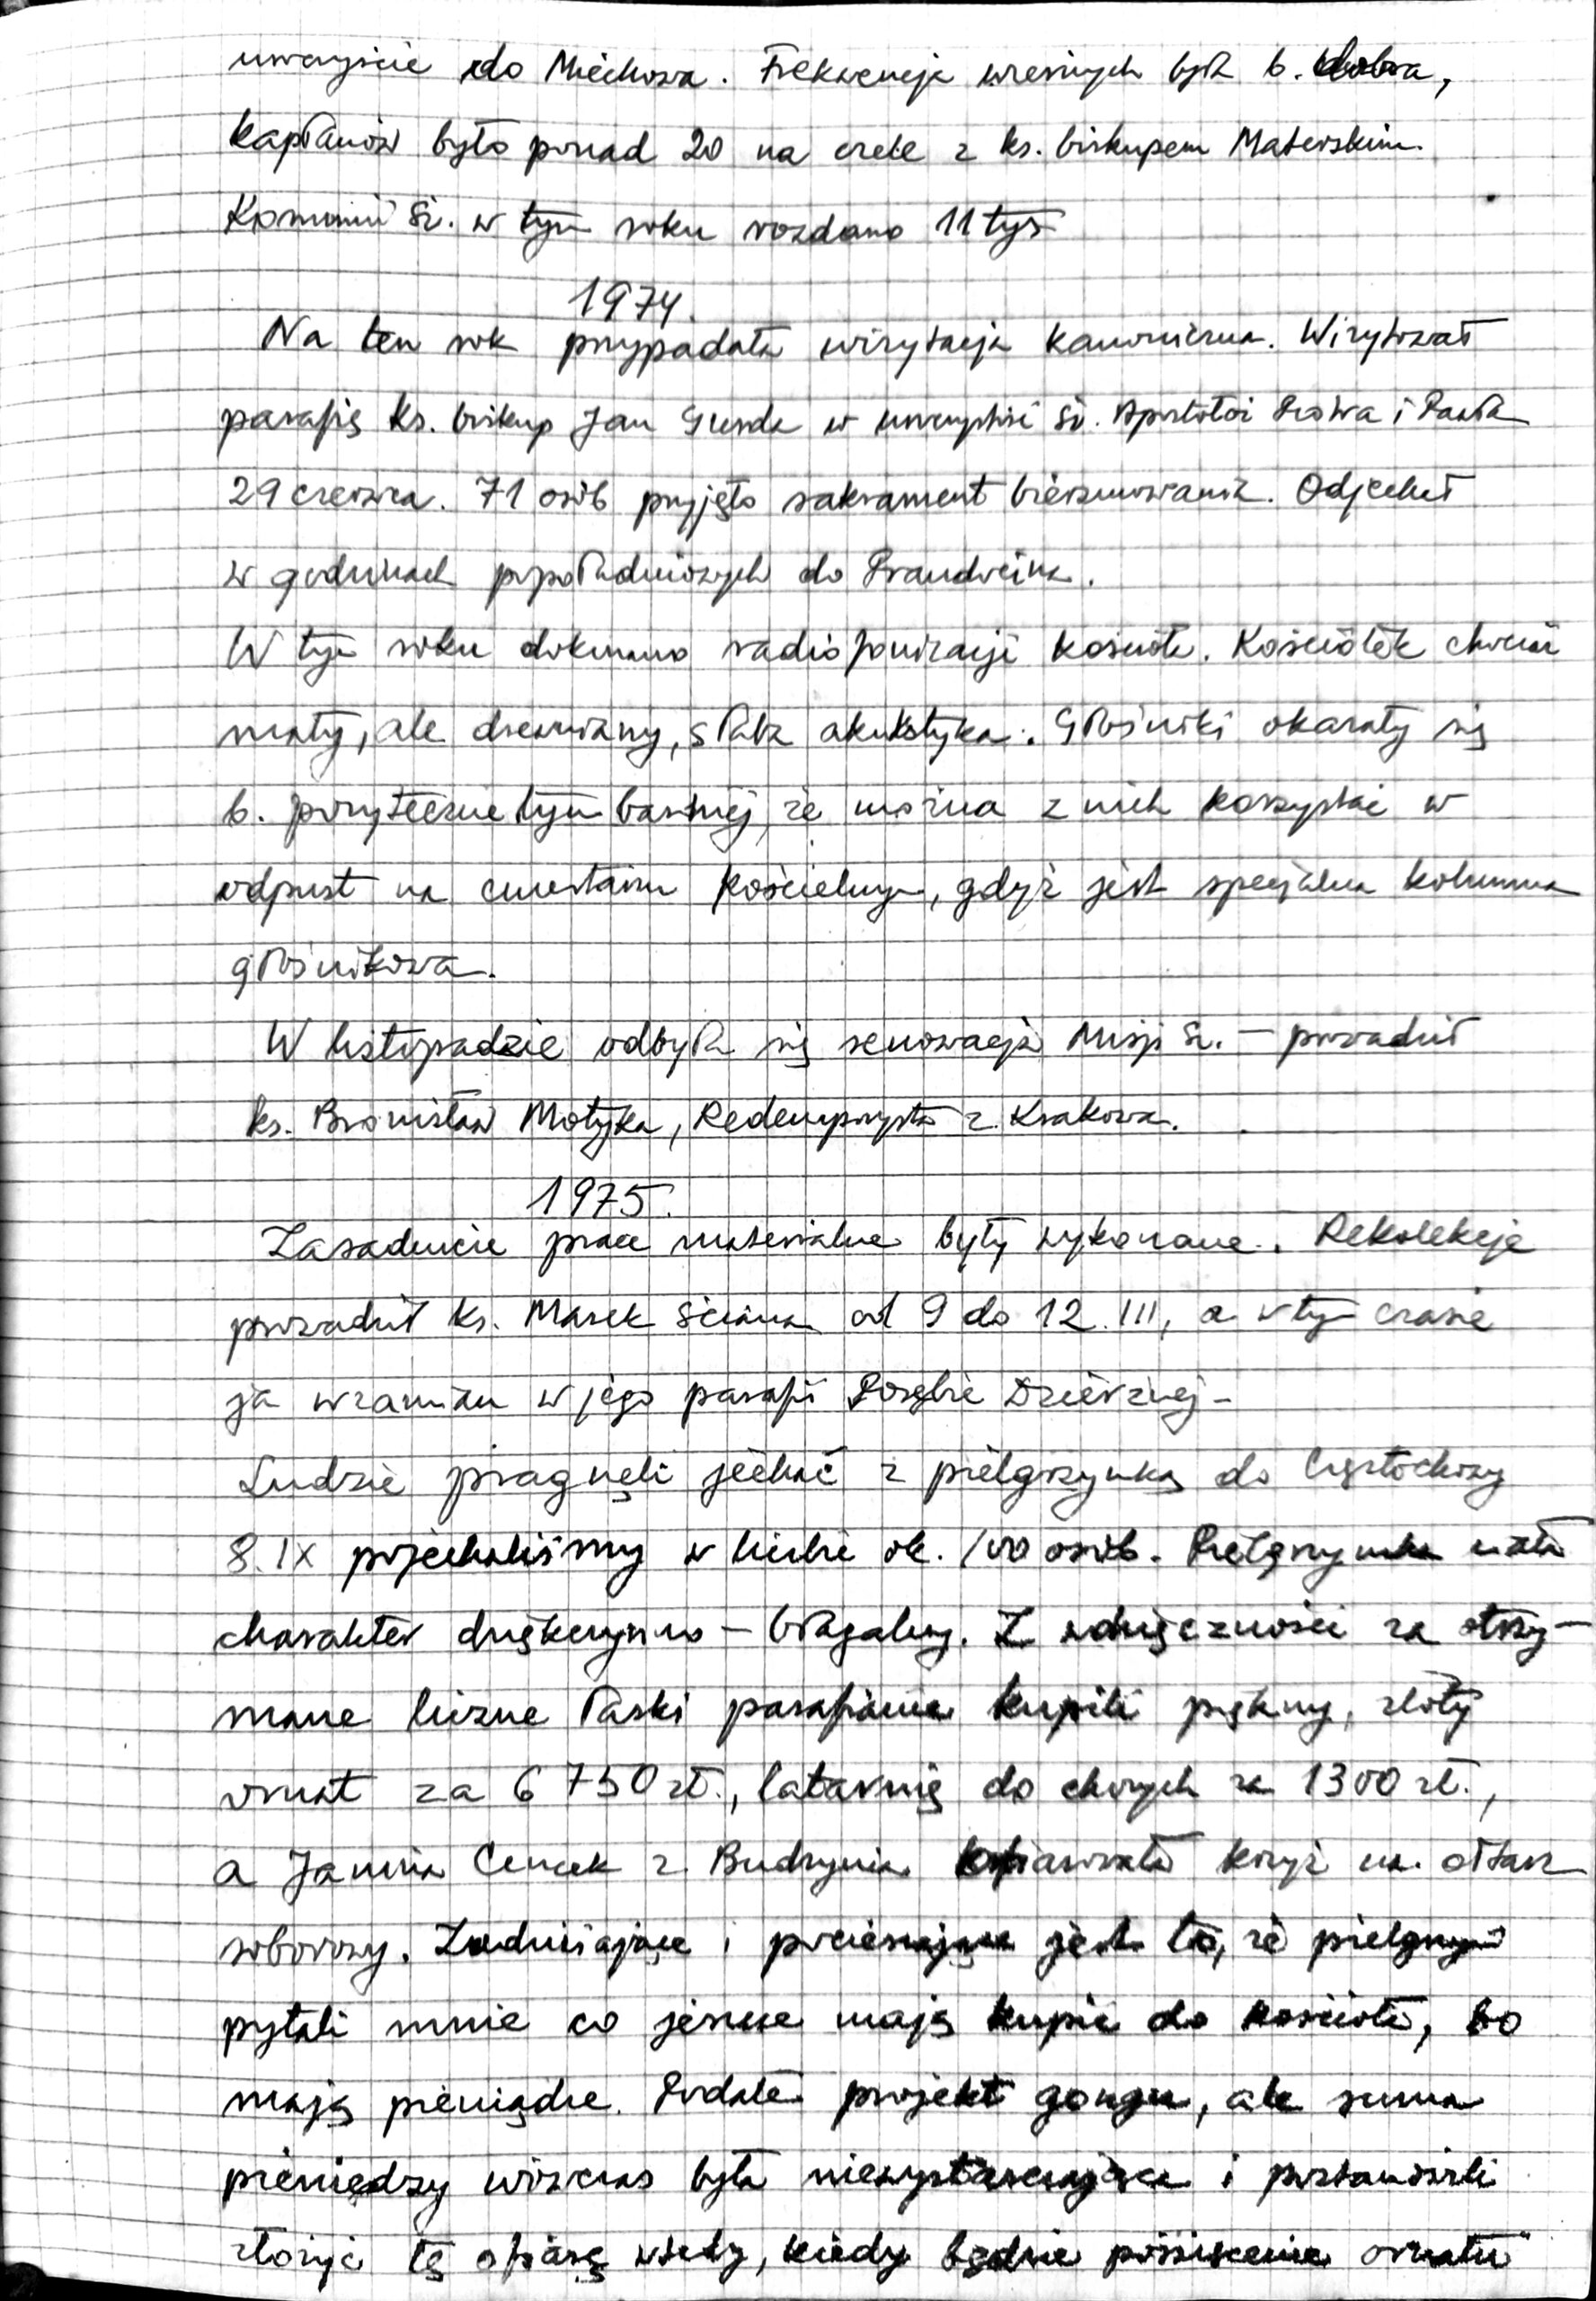 uroczyście do Miechowa. Frekwencja wiernych była b. dobra,
kapłanów było ponad 20 na czele z ks. biskupem Materskim.
Komunii św. w tym roku rozdano 11 tys
1974.
Na ten rok przypadała wizytacja kanoniczna. Wizytował
parafię ks. biskup Jan Gurda w uroczystość św. Apostołów Piotra i Pawła
29 czerwca. 71 osób przyjęło sakrament bierzmowania. Odjechał
w godzinach popołudniowych do Prandocina.
W tym roku dokonano radiofonizacji kościoła. Kościółek chociaż
mały, ale drewniany, słaba akustyka. Głośniki okazały się
b. pożyteczne tym bardziej, że można z nich korzystać w
odpust na cmentarzu kościelnym, gdyż jest specjalna kolumna
głośnikowa.
W listopadzie odbyła się renowacja Misji św. – prowadził
ks. Bronisław Motyka, Redemptorysta z Krakowa.
1975.
Zasadnicze prace materialne były wykonane. Rekolekcje
prowadził ks. Marek od 9 do 12.III, a w tym czasie
ja wzamian w jego parafii Porębie Dzierżnej –
Ludzie pragnęli jechać z pielgrzymką do Częstochowy
8.IX pojechaliśmy w liczbie ok. 100 osób. Pielgrzymka miała
charakter dziękczynno – błagalny. Z wdzięczności za otrzy-
mane liczne łaski parafianie kupili piękny, złoty
ornat za 6 750 zł., latarnię do chorych za 1300 zł.,
a Janina Cencek z Budzynia ofiarowała krzyż na ołtarz
soborowy. Zadziwiające i pocieszające jest to, że pielgrzymi
pytali mnie co jeszcze mają kupić do kościoła, bo
mają pieniądze. Podałem projekt gongu, ale suma
pieniędzy wówczas była niewystarczająca i postanowili
złożyć tę ofiarę wtedy, kiedy będzie poświęcenie ornatu